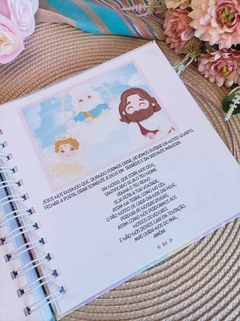 JESUS NOS ENSINOU QUE, QUANDO FORMOS ORAR, DEVEMOS ENTRAR EM NOSSO QUARTO,
FECHAR A PORTA, ORAR SOMENTE A DEUS EM SEGREDO E DA SEGUINTE MANEIRA:
PAI NOSSO, QUE ESTÁS NOS CÉUS,
SANTIFICADO SEJA O TEU NOME.
VENHA O TEU REINO.
SEJA FEITA A TUA VONTADE,
ASSIM NA TERRA COMO NO CÉU.
O PÃO NOSSO DE CADA DIA NOS DAI HOJE.
PERDOA AS NOSSAS DÍVIDAS,
ASSIM COMO NÓS PERDOAMOS AOS
NOSSOS DEVEDORES.
E NÃO NOS DEIXES CAIR EM TENTAÇÃO,
MAS LIVRA-NOS DO MAL.
AMÉM!